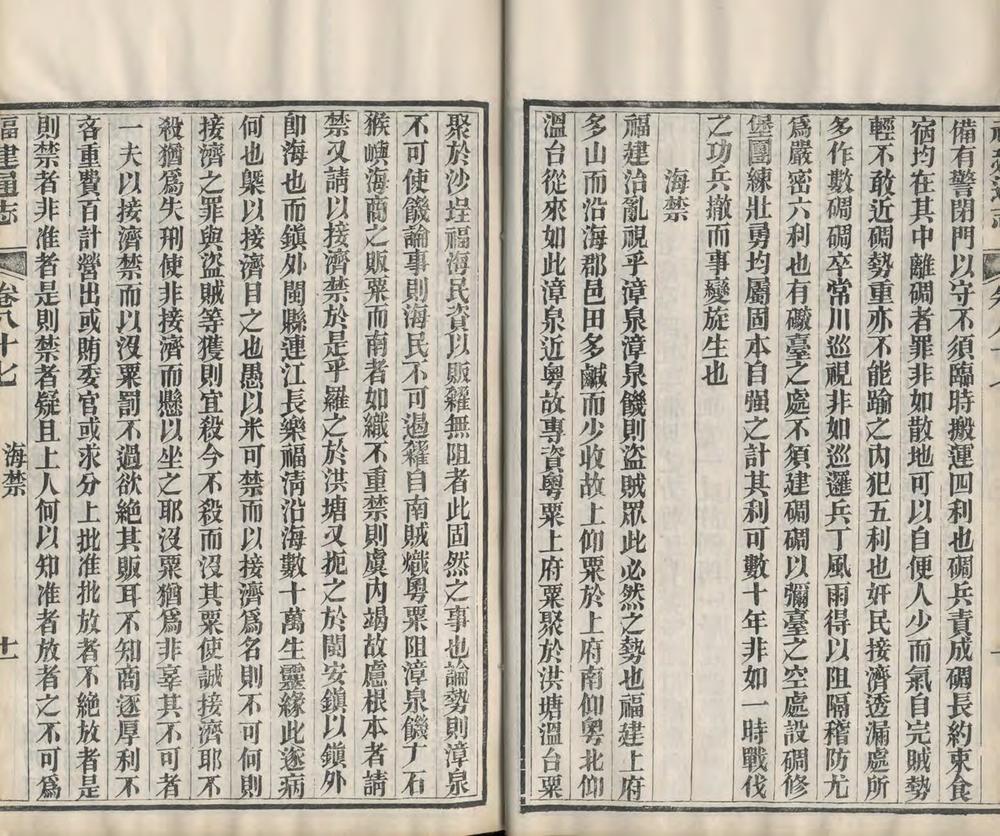 備有警閉門以守不須臨時搬運四利也碉兵責成碉長約束食
宿均在其中離碉者罪非如散地可以自便人少而氣自完賊勢
輕不敢近碉勢重亦不能踰之內犯五利也奸民接濟透漏處所
多作數碉碉卒常川巡視非如巡邏兵丁風雨得以阻隔稽防尤
爲嚴密六利也有礮臺之處不須建碉碉以彌臺之空處設碉修
堡團練壯勇均屬固本自强之計其利可數十年非如一時戰伐
之功兵撤而事變旋生也
海禁
福建治亂視乎漳泉漳泉饑則盜賊眾此必然之勢也福建上府
多山而沿海郡邑田多鹹而少收故上仰粟於上府南仰粵北仰
溫台從來如此漳泉近粵故專資粵粟上府粟聚於洪塘溫台粟
聚於沙埕福海民資以販糴無阻者此固然之事也論勢則漳泉
不可使饑論事則海民不可遏糴自南賊熾粵粟阻漳泉饑斗石
猴嶼海商之販粟而南者如織不重禁則虞內竭故慮根本者請
禁又請以接濟禁於是乎羅之於洪塘又扼之於閩安鎭以鎭外
卽海也而鎭外閩縣連江長樂福淸沿海數十萬生靈緣此遂病
何也槩以接濟目之也愚以米可禁而以接濟爲名則不可何則
接濟之罪與盜賊等獲則宜殺今不殺而沒其粟使誠接濟耶不
殺猶爲失刑使非接濟而懸以坐之耶沒粟猶爲非辜其不可者
一夫以接濟禁而以沒粟罰不過欲絶其販耳不知商逐厚利不
吝重費百計營出或賄委官或求分上批准批放者不絶放者是
則禁者非准者是則禁者疑且上人何以知准者放者之不可爲
福建通志
卷八十七
海禁
十一